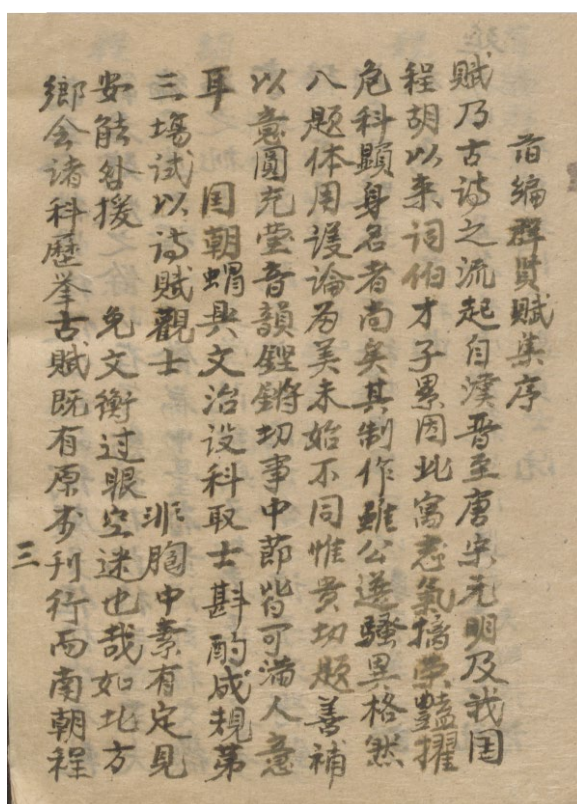 莭編群賢賦集序
賦乃古詩之流起自漢晋至唐宋元明及我国
程胡以来词伯才子累因此寓志氣摛荣艶擢
危科顕身名者尚矣其制作雖公選騷異格然
八题体用議論為美未始不同惟贵切题善補
以意圓充瑩音韻鏗鏘切事中節皆可满人意
耳 国朝蝟兴文治设科取士斟酌成規第
三塲試以诗賦觀士 非胸中素有定見
安能攀援 免文衡过眼空迷也哉如北方
鄉会诸科歷举古賦既有原本刊行而南朝程
三